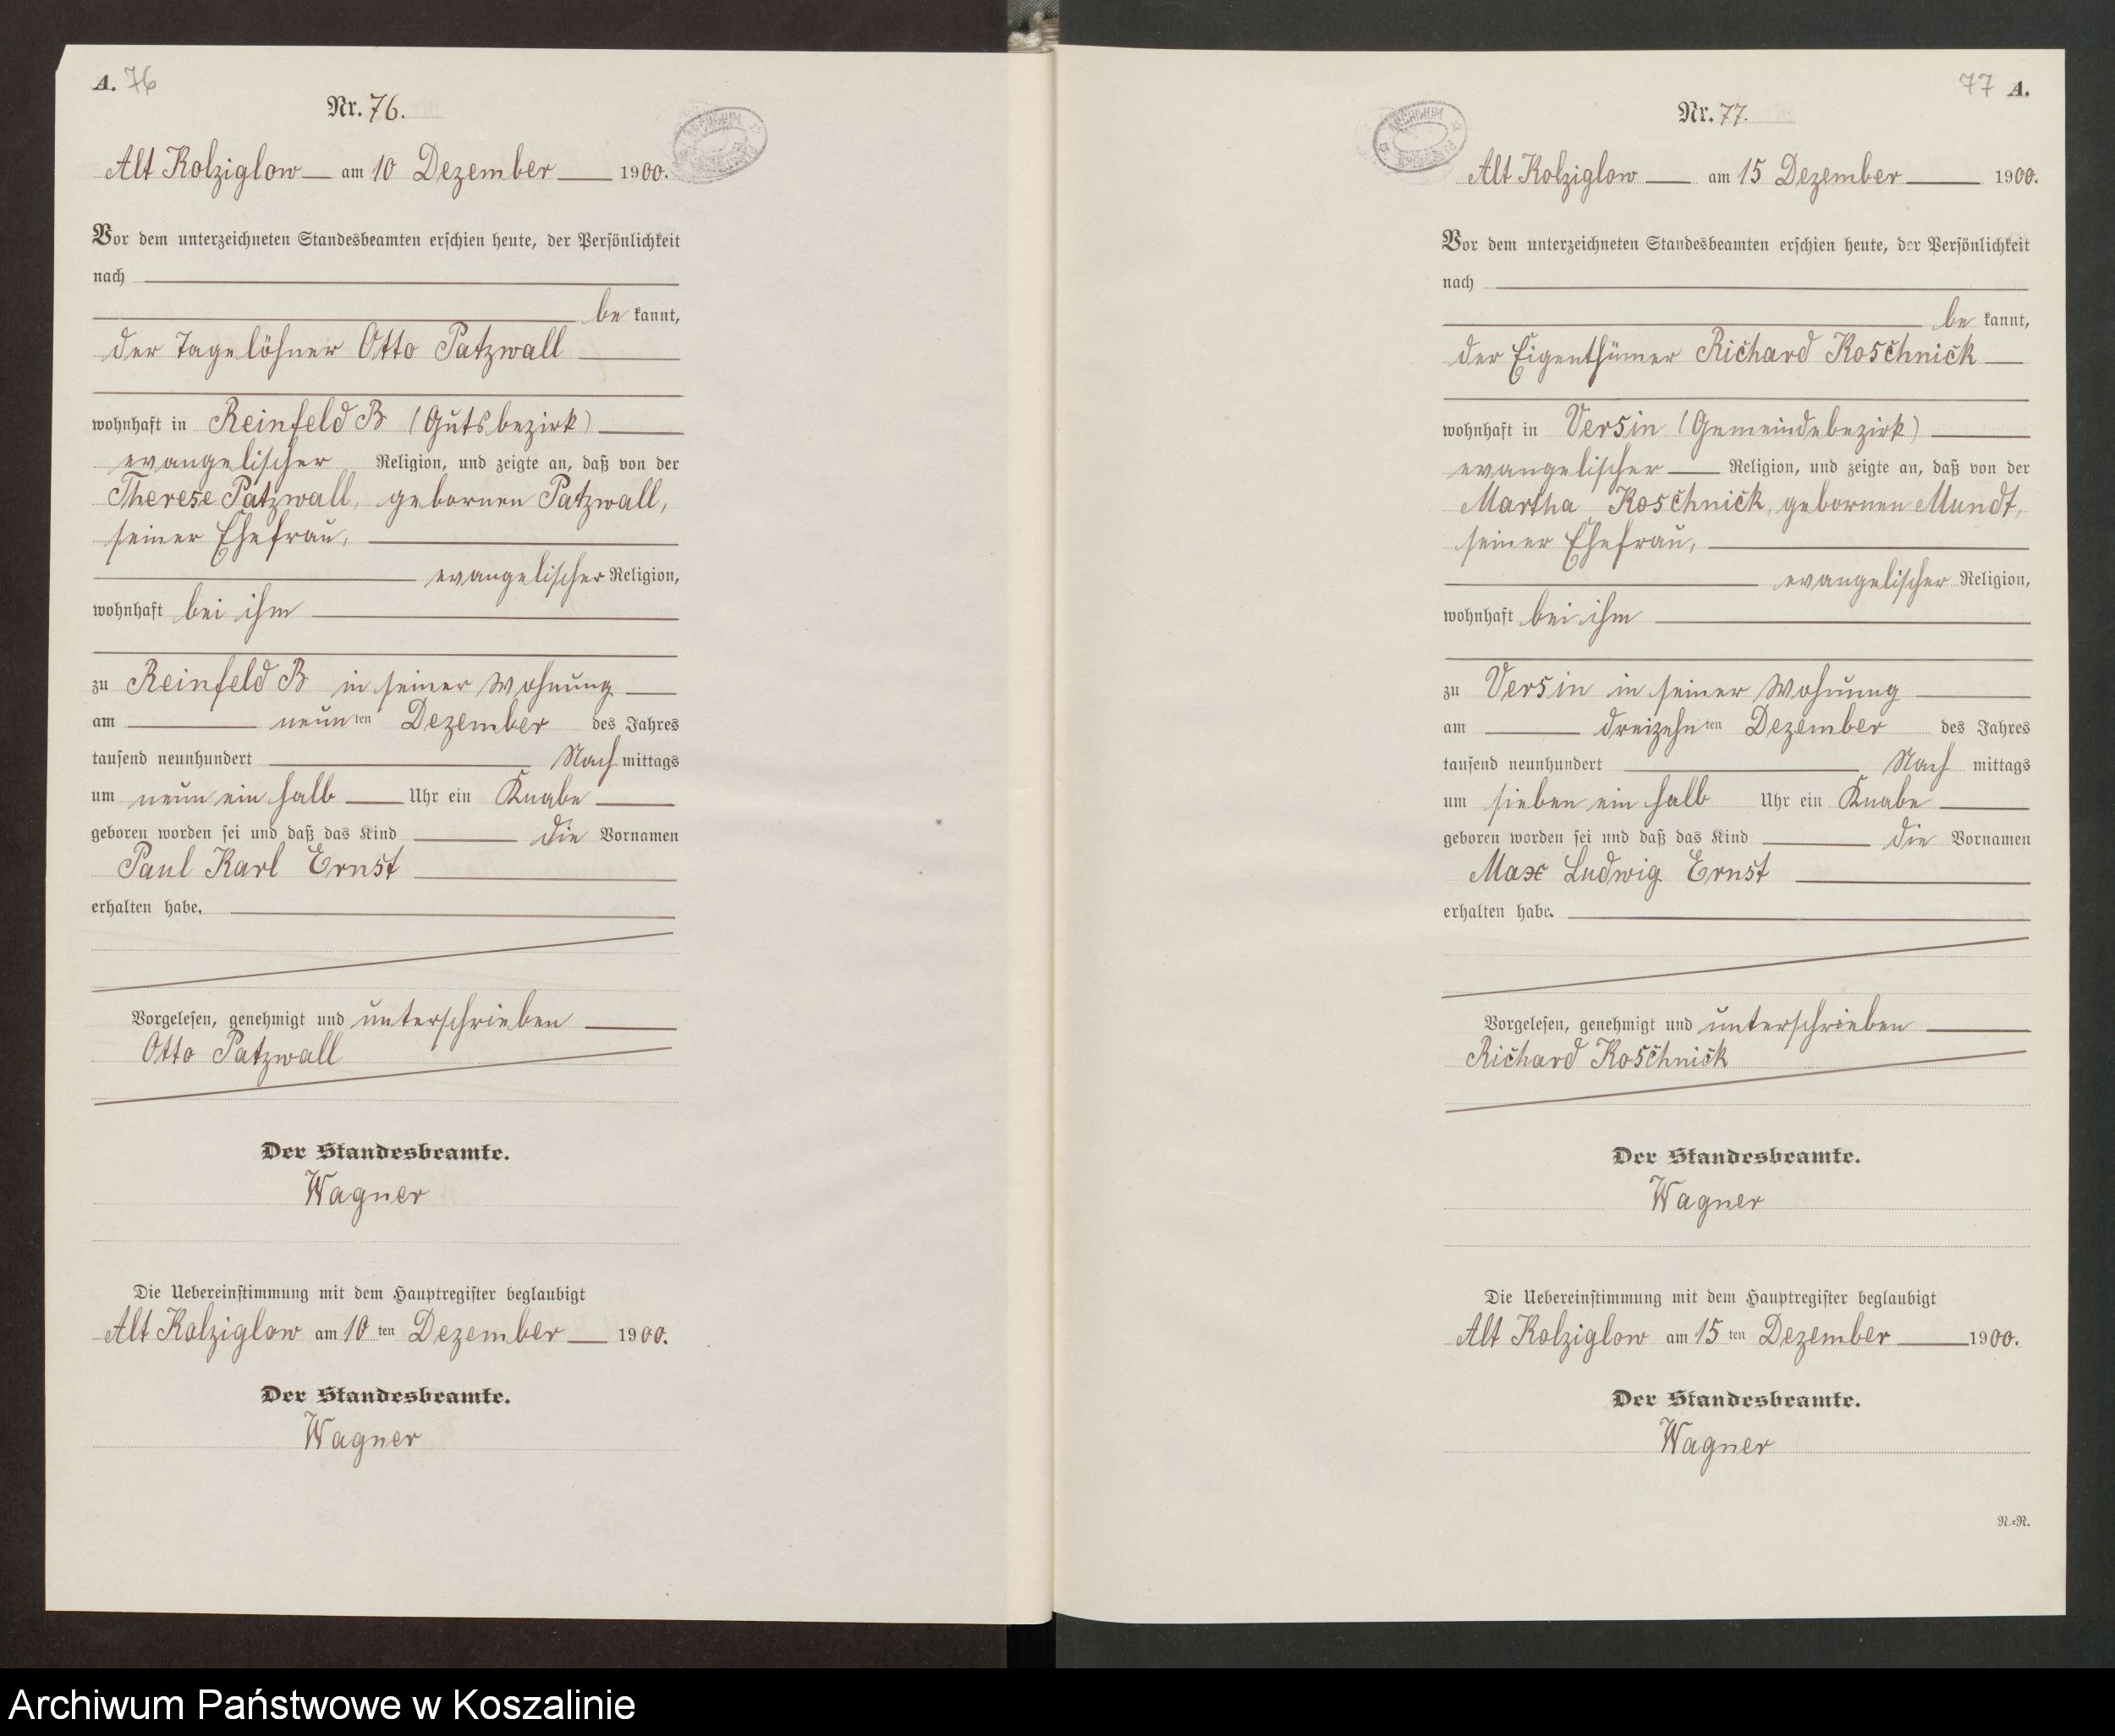 A. 76
Nr. 76.
Alt Kolziglow am 10 Dezember 1900.
Vor dem unterzeichneten Standesbeamten erschien heute, der Persönlichkeit
nach
be kannt,
der Tagelöhner Otto Patzwall
wohnhaft in Reinfeld B (Gutsbezirk)
evangelischer Religion, und zeigte an, daß von der
Therese Patzwall, gebornen Patzwall,
seiner Ehefrau,
evangelischer Religion,
wohnhaft bei ihm
zu Reinfeld B in seiner Wohnung
am neun ten Dezember des Jahres
tausend neunhundert Nach mittags
um neun ein halb Uhr ein Knabe
geboren worden sei und daß das Kind die Vornamen
Paul Karl Ernst
erhalten habe.
Vorgelesen, genehmigt und unterschrieben
Otto Patzwall
Der Standesbeamte.
Wagner
Die Uebereinstimmung mit dem Hauptregister beglaubigt
Alt Kolziglow am 10 ten Dezember 1900.
Der Standesbeamte.
Wagner
77 A.
Nr. 77.
Alt Kolziglow am 15 Dezember 1900.
Vor dem unterzeichneten Standesbeamten erschien heute, der Persönlichkeit
nach
be kannt,
der Eigenthümer Richard Koschnick
wohnhaft in Versin (Gemeindebezirk)
evangelischer Religion, und zeigte an, daß von der
Martha Koschnick, gebornen Mundt,
seiner Ehefrau,
evangelischer Religion,
wohnhaft bei ihm
zu Versin in seiner Wohnung
am dreizehn ten Dezember des Jahres
tausend neunhundert Nach mittags
um sieben ein halb Uhr ein Knabe
geboren worden sei und daß das Kind die Vornamen
Max Ludwig Ernst
erhalten habe.
Vorgelesen, genehmigt und unterschrieben
Richard Koschnick
Der Standesbeamte.
Wagner
Die Uebereinstimmung mit dem Hauptregister beglaubigt
Alt Kolziglow am 15 ten Dezember 1900.
Der Standesbeamte.
Wagner
N.=R.
Archiwum Państwowe w Koszalinie